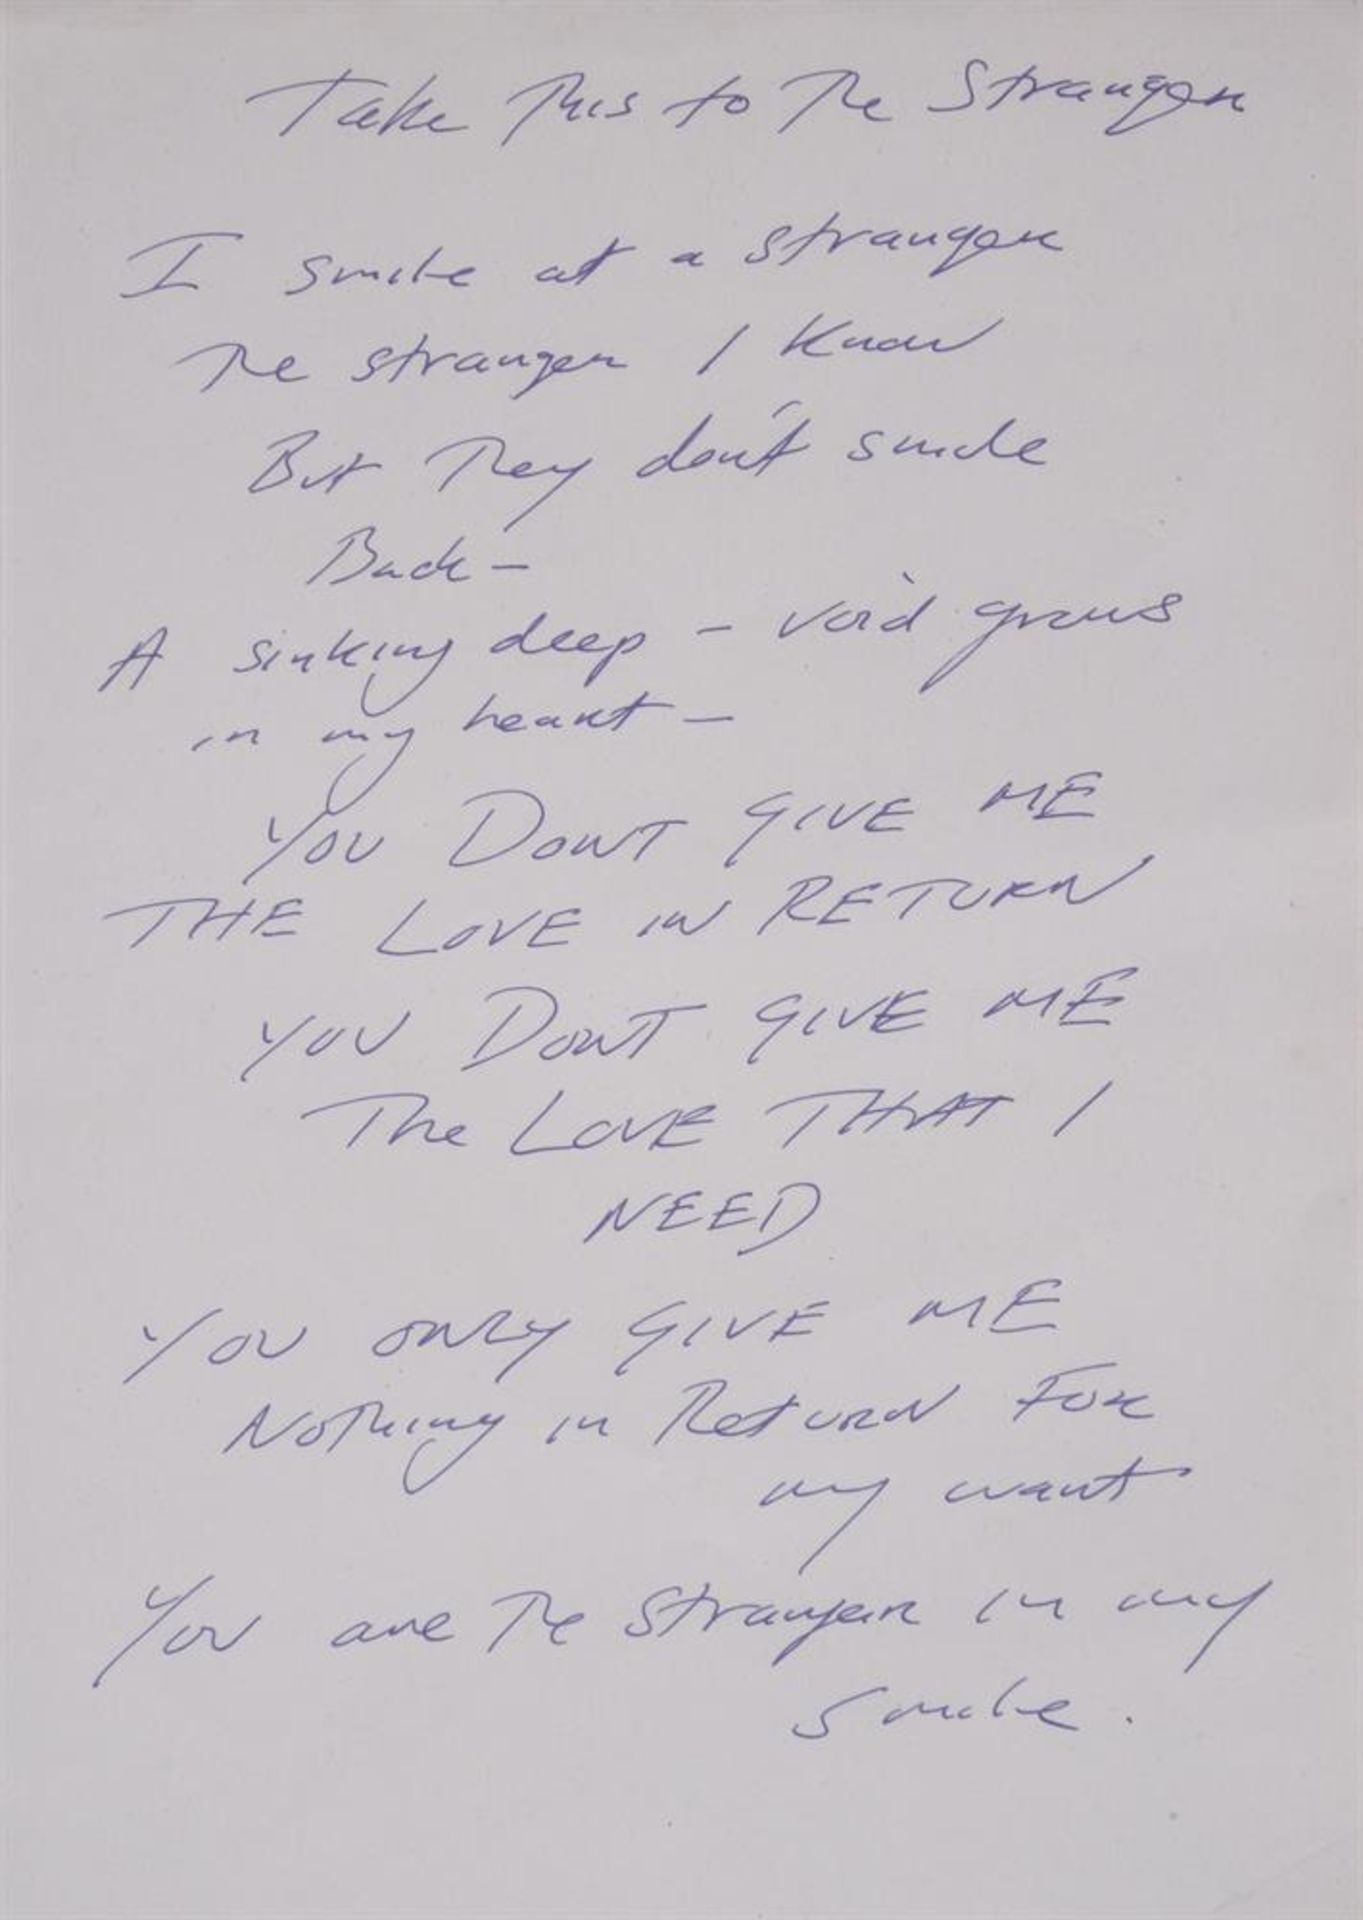 Take This to The Stranger
I smile at a stranger
The stranger I know
But They don't smile
Back -
A sinking deep - void grows
in my heart -
YOU DONT GIVE ME
THE LOVE IN RETURN
YOU DONT GIVE ME
The LOVE THAT I
NEED
YOU ONLY GIVE ME
NoThing in RETURN FOR
my want
You are The Stranger in my
smile.